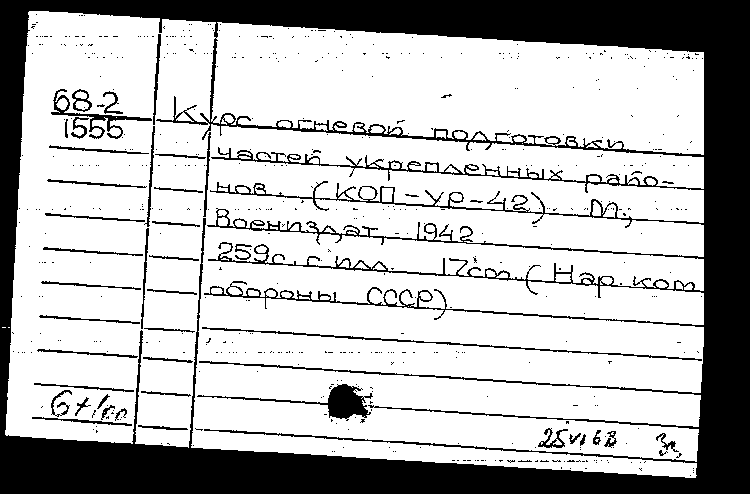 68-2
1555
Курс огневой подготовки
частей укрепленных райо-
нов. (КОП-УР-42). М.,
Воениздат, 1942.
259с. с илл. 17cm. (Нар. ком
обороны СССР)
25 VI 6